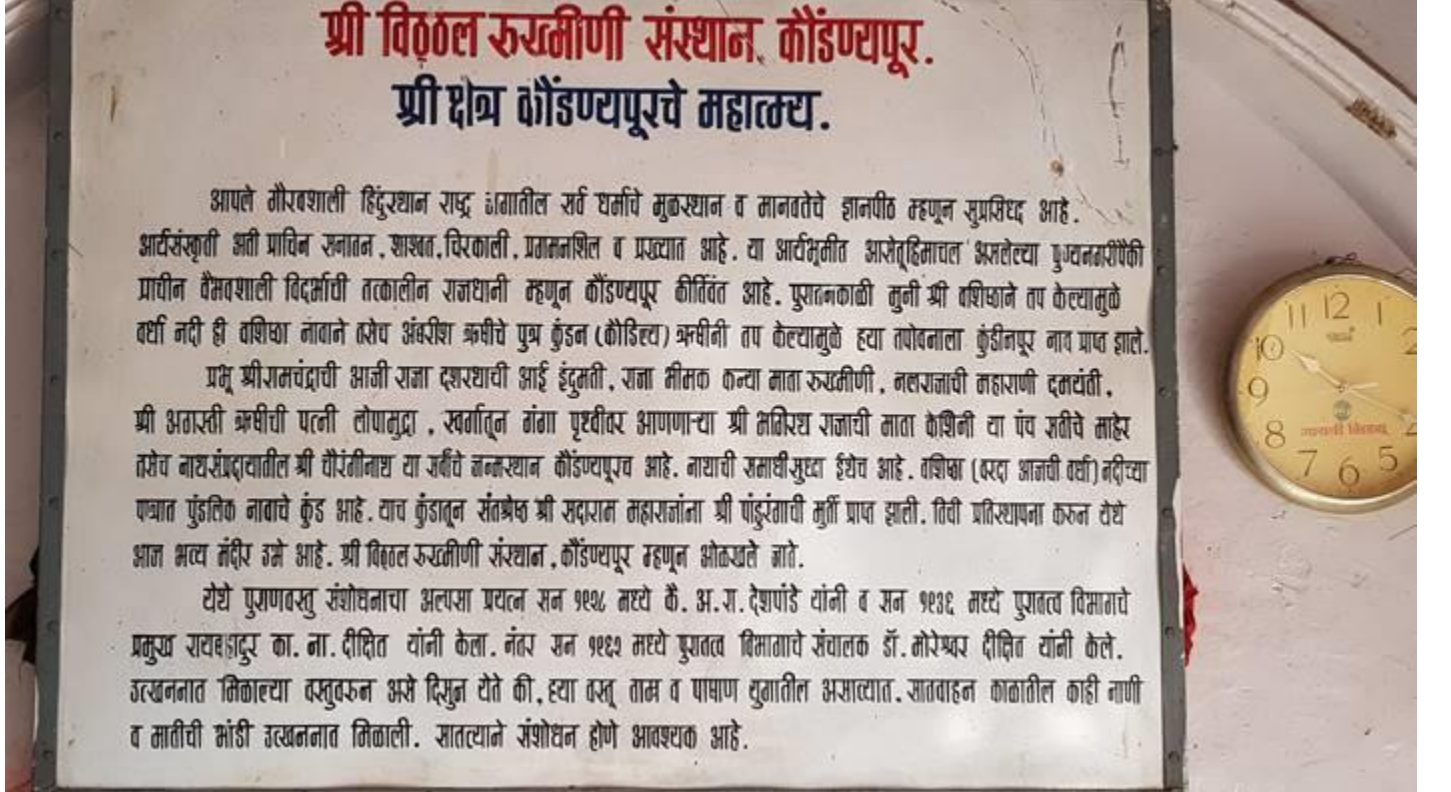 श्री विठ्ठल रुख्मीणी संस्थान, कौंडण्यपूर.
श्री क्षेत्र कौंडण्यपूरचे महात्म्य.
आपले गौरवशाली हिंदुस्थान राष्ट्र जगातील सर्व धर्माचे मुळस्थान व मानवतेचे ज्ञानपीठ म्हणून सुप्रसिध्द आहे.
आर्यसंस्कृती अती प्राचिन सनातन, शाश्वत, चिरकाली, प्रगमनशिल व प्रख्यात आहे. या आर्यभूमीत आसेतूहिमाचल असलेल्या पुण्यनगरींपैकी
प्राचीन वैभवशाली विदर्भाची तत्कालीन राजधानी म्हणून कौंडण्यपूर कीर्तिवंत आहे. पुरातनकाळी मुनी श्री वशिष्ठाने तप केल्यामुळे
वर्धा नदी ही वशिष्ठा नावाने तसेच अंबरीश ऋषीचे पुत्र कुंडन (कौडिल्य) ऋषीनी तप केल्यामुळे हया तपोवनाला कुंडीनपूर नाव प्राप्त झाले.
प्रभू श्रीरामचंद्राची आजी राजा दशरथाची आई इंदुमती, राजा भीमक कन्या माता रुख्मीणी, नलराजाची महाराणी दमयंती,
श्री अगस्ती ऋषीची पत्नी लोपामुद्रा, स्वर्गातून गंगा पृथ्वीवर आणणाऱ्या श्री भगिरथ राजाची माता केशिनी या पंच सतीचे माहेर
तसेच नाथसंप्रदायातील श्री चौरंगीनाथ या सर्वांचे जन्मस्थान कौंडण्यपूरच आहे. नाथाची समाधीसुध्दा ईथेच आहे. वशिष्ठा (वरदा आजची वर्धा) नदीच्या
पात्रात पुंडलिक नावाचे कुंड आहे. याच कुंडातून संतश्रेष्ठ श्री सदाराम महाराजांना श्री पांडुरंगाची मुर्ती प्राप्त झाली. तिची प्रतिस्थापना करुन येथे
आज भव्य मंदीर उभे आहे. श्री विठ्ठल रुख्मीणी संस्थान, कौंडण्यपूर म्हणून ओळखले जाते.
येथे पुराणवस्तु संशोधनाचा अल्पसा प्रयत्न सन १९२८ मध्ये कै. अ.रा. देशपांडे यांनी व सन १९३६ मध्ये पुरातत्व विभागाचे
प्रमुख रायबहादुर का. ना. दीक्षित यांनी केला. नंतर सन १९६२ मध्ये पुरातत्व विभागाचे संचालक डॉ. मोरेश्वर दीक्षित यांनी केले.
उत्खननात मिळाल्या वस्तुवरुन असे दिसुन येते की, हया वस्तू ताम्र व पाषाण युगातील असाव्यात. सातवाहन काळातील काही नाणी
व मातीची भांडी उत्खननात मिळाली. सातत्याने संशोधन होणे आवश्यक आहे.
11 12 1
10 2
9
8 4
7 6 5